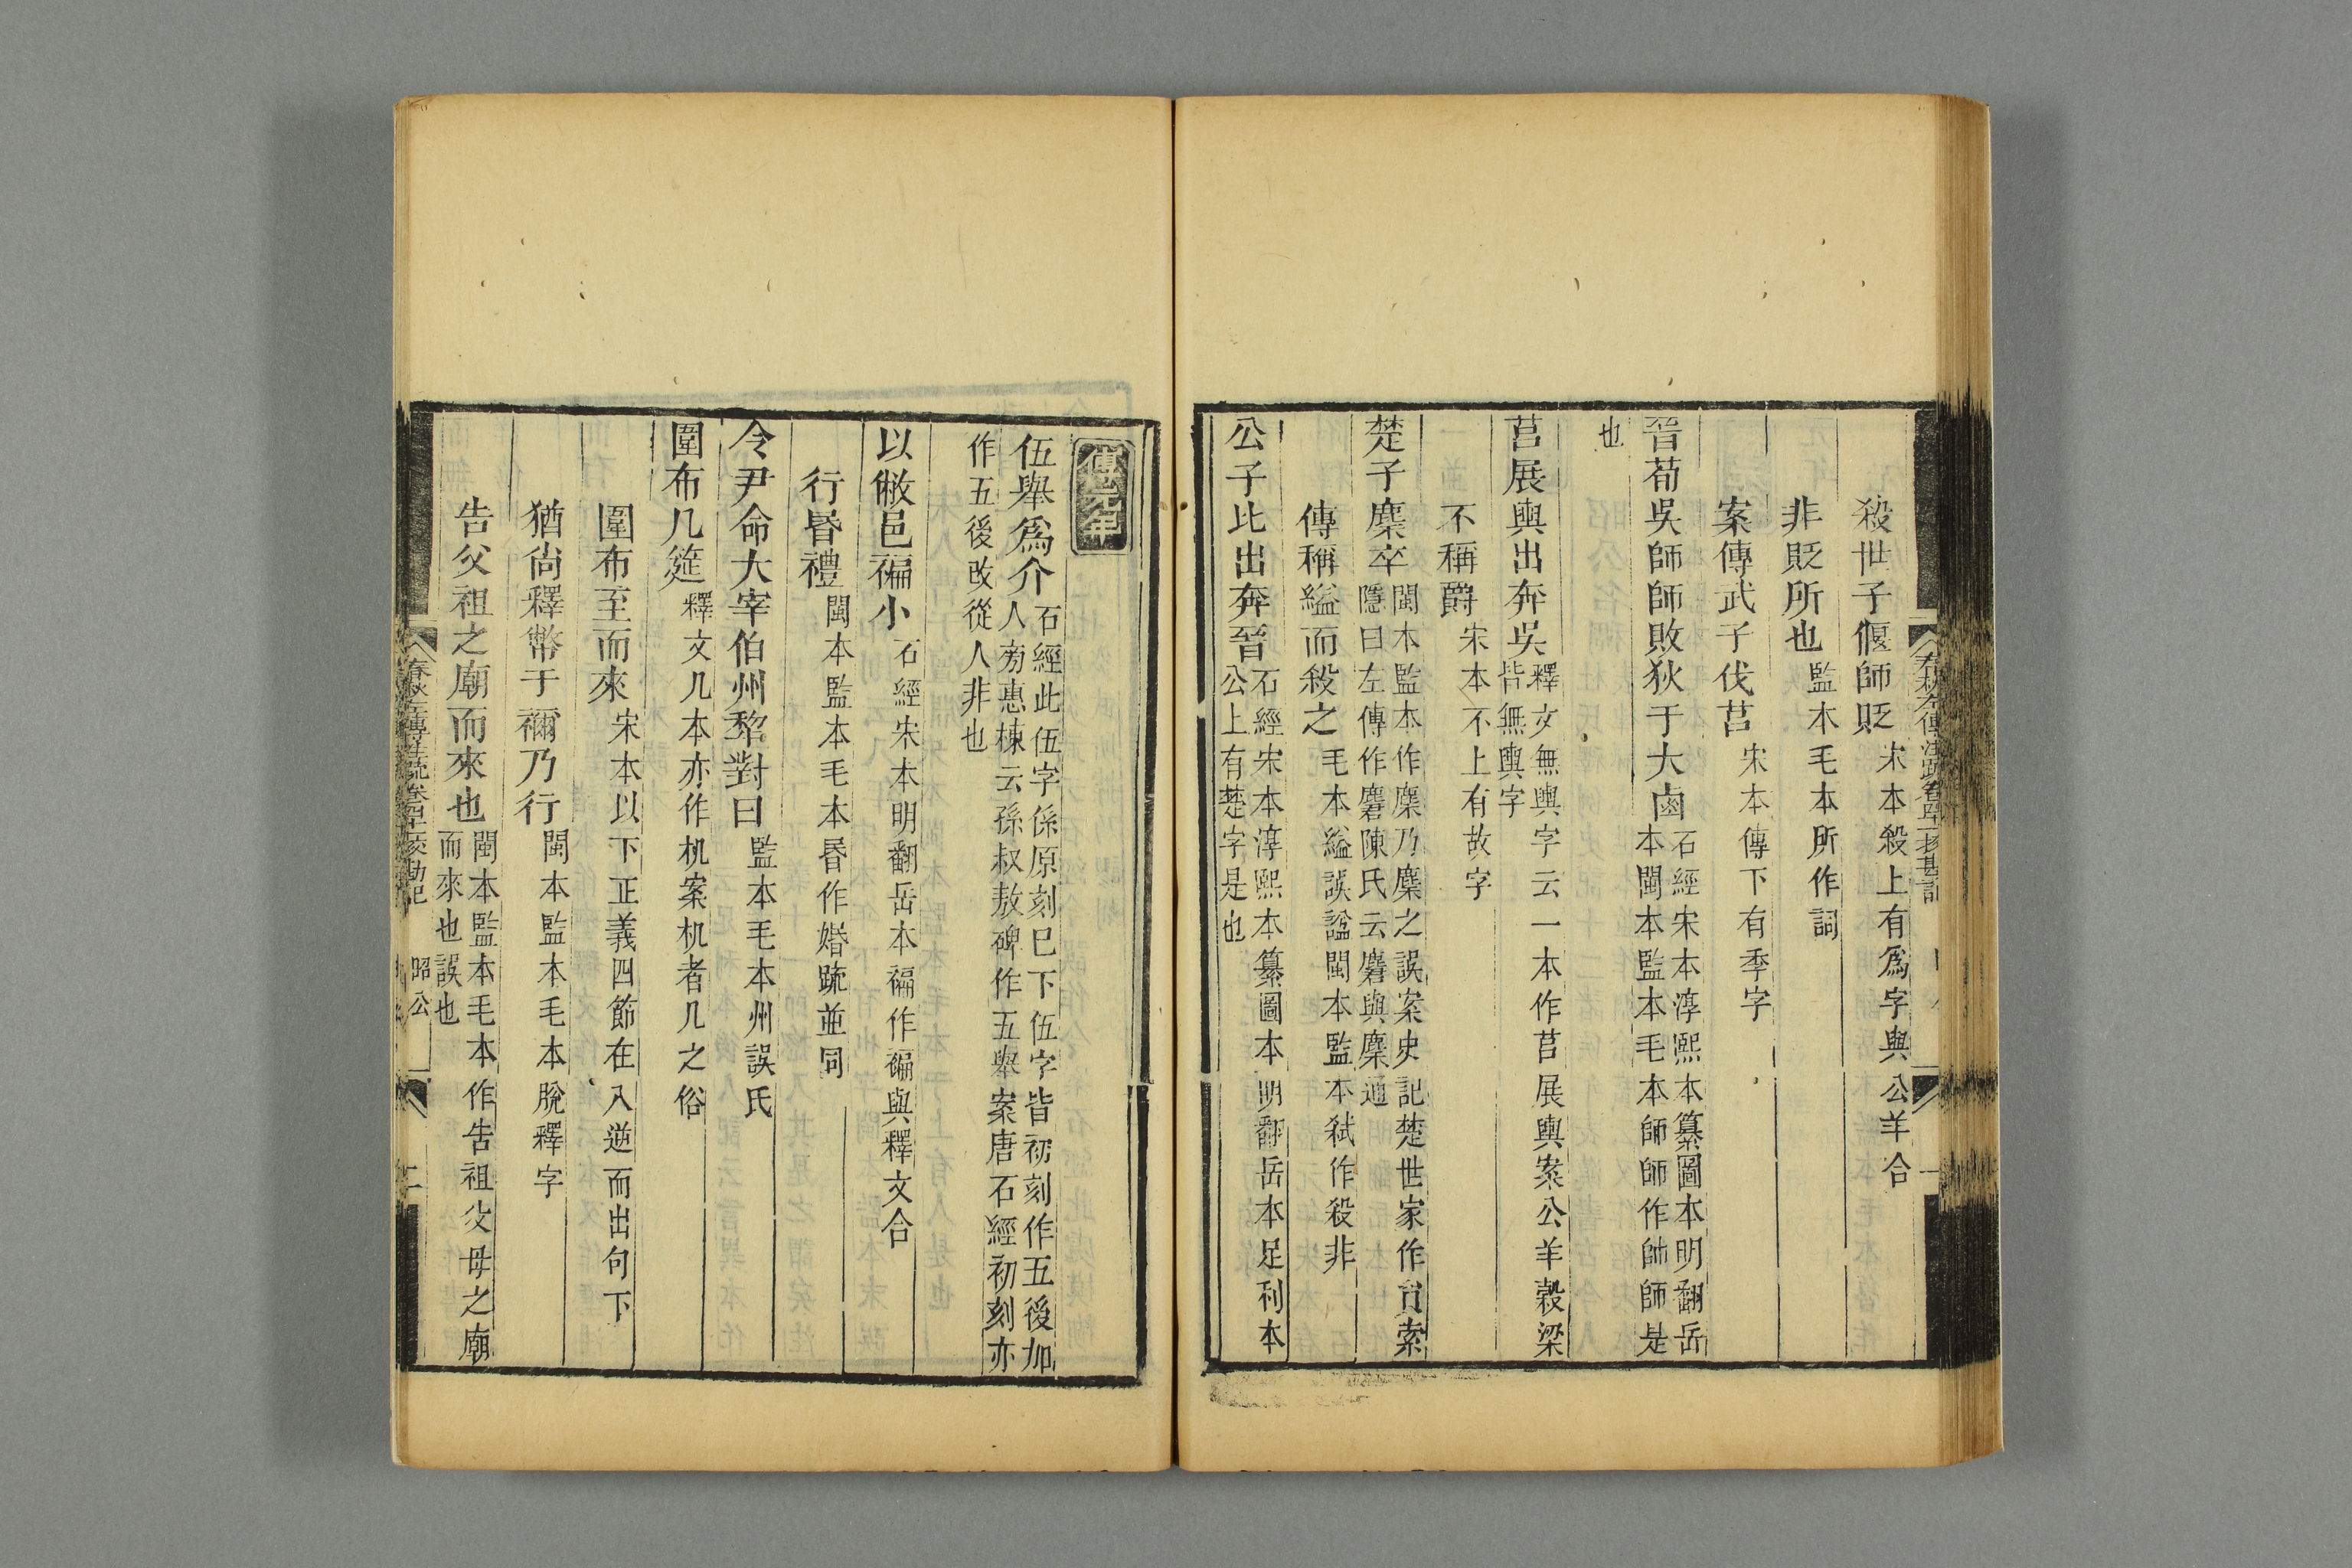 殺世子偃師貶宋本殺上有爲字與公羊合
非貶所也監本毛本所作詞
案傳武子伐莒宋本傳下有季字
晉荀吳師師敗狄于大鹵石經宋本淳熙本纂圖本明翻岳
本閩本監本毛本師師作帥師是
也
莒展輿出奔吳釋文無輿字云一本作莒展輿案公羊榖梁
皆無輿字
不稱爵宋本不上有故字
楚子麇卒閩本監本作麋乃麇之誤案史記楚世家作員索
隱曰左傳作麏陳氏云麏與麇通
傳稱縊而殺之毛本縊誤諡閩本監本弒作殺非
公子比出奔晉石經宋本淳熙本纂圖本明翻岳本足利本
公上有楚字是也
傳元年
伍舉爲介石經此伍字係原刻巳下伍字皆初刻作五後加
人旁惠棟云孫叔敖碑作五舉案唐石經初刻亦
作五後改從人非也
以敝邑褊小石經宋本明翻岳本褊作褊與釋文合
行昏禮閩本監本毛本昏作婚疏並同
令尹命大宰伯州犂對曰監本毛本州誤氏
圍布几筵釋文几本亦作机案机者几之俗
圍布至而來宋本以下正義四節在入逆而出句下
猶尙釋幣于禰乃行閩本監本毛本脫釋字
告父祖之廟而來也閩本監本毛本作告祖父母之廟
而來也誤也
春秋左傳注疏卷四十一挍勘記
昭公
二